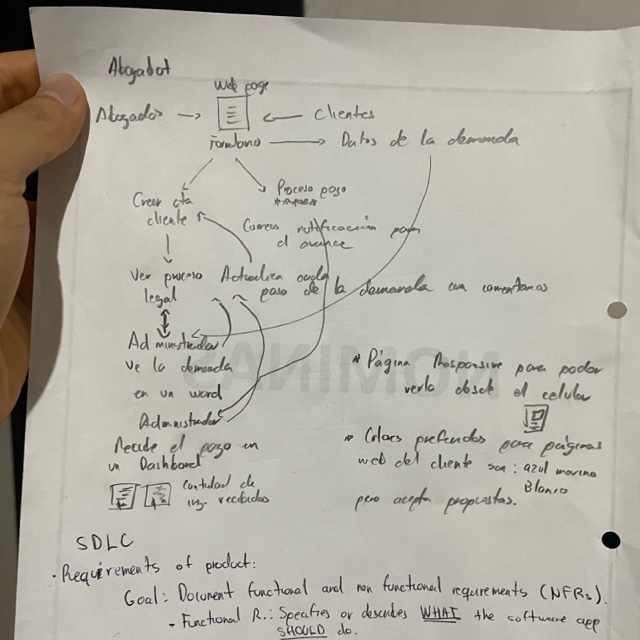 Abogabot
Web page
Abogados → ← Clientes
Formulario → Datos de la demanda
Crear cta
cliente
Proceso pago
*****
Correos notificación para
el avance
Ver proceso
legal
Actualiza cada
paso de la demanda con comentarios
Administrador
ve la demanda
en un word
Administrador
Recibe el pago en
un Dashboard
cantidad de
ing. recibidos
* Página Responsive para poder
verla desde el celular
* Colores preferidos para páginas
web del cliente son: azul marino
Blanco
pero acepta propuestas.
NOMINAS
SDLC
· Requirements of product:
Goal: Document functional and non functional requirements (NFRs).
- Functional R.: Specifies or describes WHAT the software app
SHOULD do.